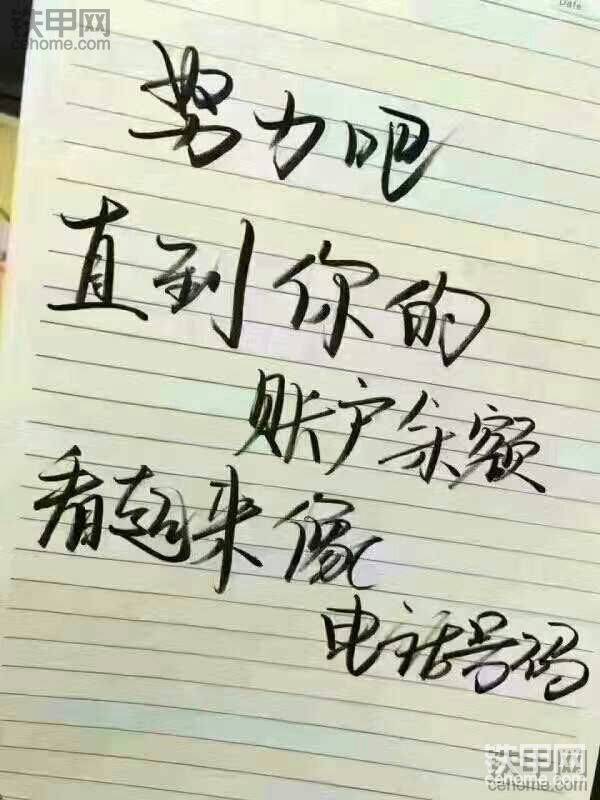 铁甲网
cehome.com
Date
努力吧
直到你的
账户余额
看起来像
电话号码
铁甲网
cehome.com